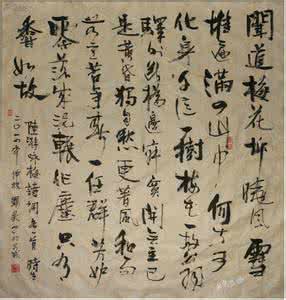 聞道梅花坼曉風雪
堆遍滿四山中何方可
化身千億一樹梅花一放翁
驛外斷橋邊寂寞開無主已
是黃昏獨自愁更著風和
雨无意苦爭春一任群芳妒
零落成泥碾作塵只有
香如故
陸游咏梅詩詞各一首
二〇一六年仲秋